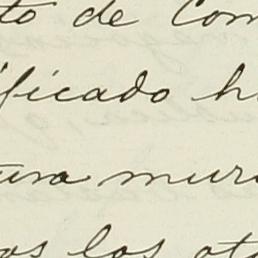 to de Com
ificado h
ura muri
os los ot